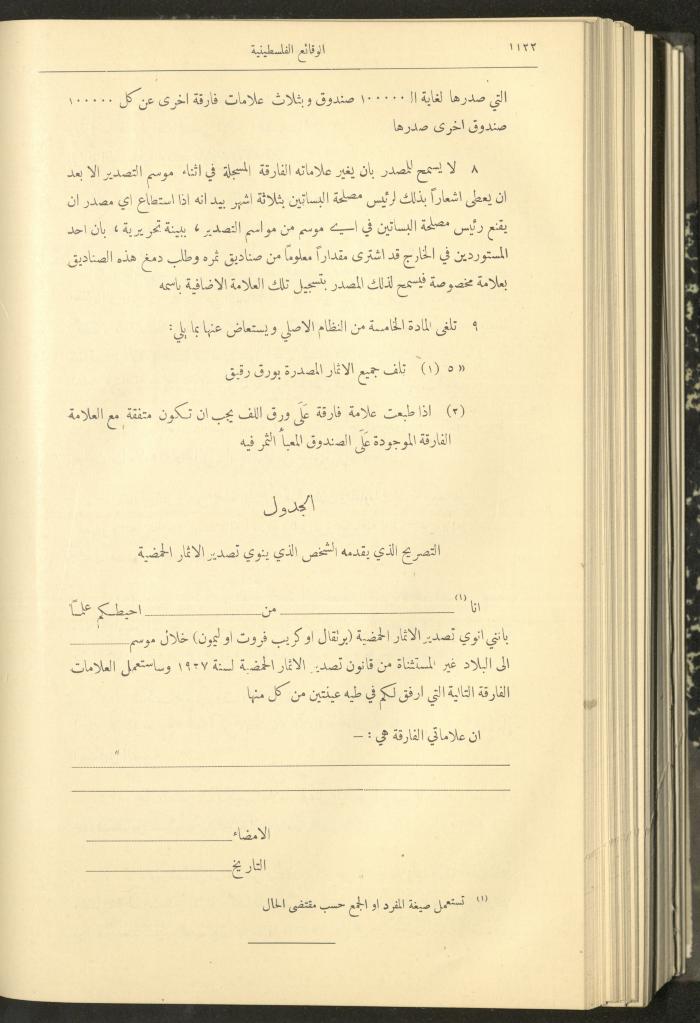 الوقائع الفلسطينية ١١٢٢
التي صدرها لغاية ال ١٠٠٠٠٠ صندوق وبثلاث علامات فارقة اخرى عن كل ١٠٠٠٠٠
صندوق اخرى صدرها
٨ لا يسمح للمصدر بان يغير علاماته الفارقة المسجلة في اثناء موسم التصدير الا بعد
ان يعطى اشعاراً بذلك لرئيس مصلحة البساتين بثلاثة اشهر بيد انه اذا استطاع اي مصدر ان
يقنع رئيس مصلحة البساتين في اي موسم من مواسم التصدير، ببينة تحريرية، بان احد
المستوردين في الخارج قد اشترى مقداراً معلوماً من صناديق ثمره وطلب دمغ هذه الصناديق
بعلامة مخصوصة فيسمح لذلك المصدر بتسجيل تلك العلامة الاضافية باسمه
٩ تلغى المادة الخامسة من النظام الاصلي ويستعاض عنها بما يلي:
«٥ (١) تلف جميع الاثمار المصدرة بورق رقيق
(٢) اذا طبعت علامة فارقة عَلَى ورق اللف يجب ان تكون متفقة مع العلامة
الفارقة الموجودة عَلَى الصندوق المعبأ الثمر فيه
الجدول
التصريح الذي يقدمه الشخص الذي ينوي تصدير الاثمار الحمضية
انا (١) ــــــــــ من ــــــــــ احيطكم علماً
بانني انوي تصدير الاثمار الحمضية (برتقال او كريب فروت او ليمون) خلال موسم ــــــــــ
الى البلاد غير المستثناة من قانون تصدير الاثمار الحمضية لسنة ١٩٢٧ وساستعمل العلامات
الفارقة التالية التي ارفق لكم في طيه عينتين من كل منها
ان علاماتي الفارقة هي: —
الامضاء ــــــــــ
التاريخ ــــــــــ
(١) تستعمل صيغة المفرد او الجمع حسب مقتضى الحال